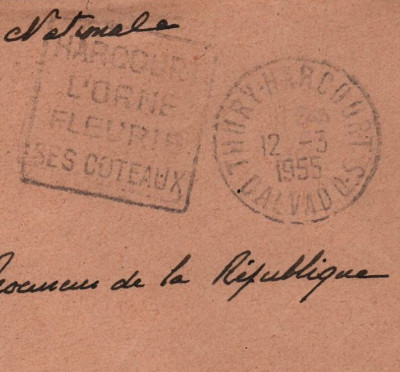 Nationale
HARCOURT
L'ORNE
FLEURIE
SES COTEAUX
THURY-HARCOURT
12 -3
1955
CALVADOS
de la République